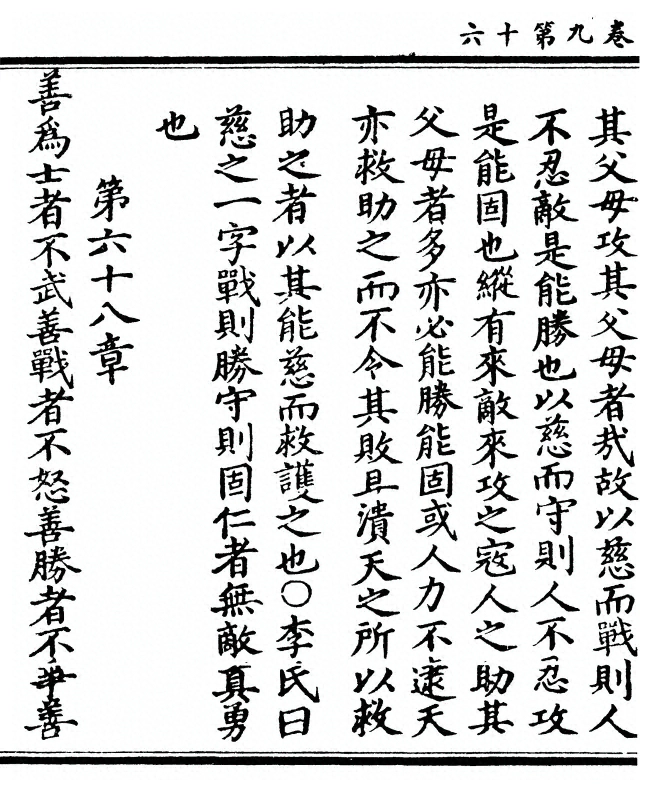 卷九第十六
其父母攻其父母者㢤故以慈而戰則人
不忍敵是能勝也以慈而守則人不忍攻
是能固也縱有來敵來攻之寇人之助其
父母者多亦必能勝能固或人力不逮天
亦救助之而不令其敗且潰天之所以救
助之者以其能慈而救護之也○李氏曰
慈之一字戰則勝守則固仁者無敵真勇
也
第六十八章
善爲士者不武善戰者不怒善勝者不爭善